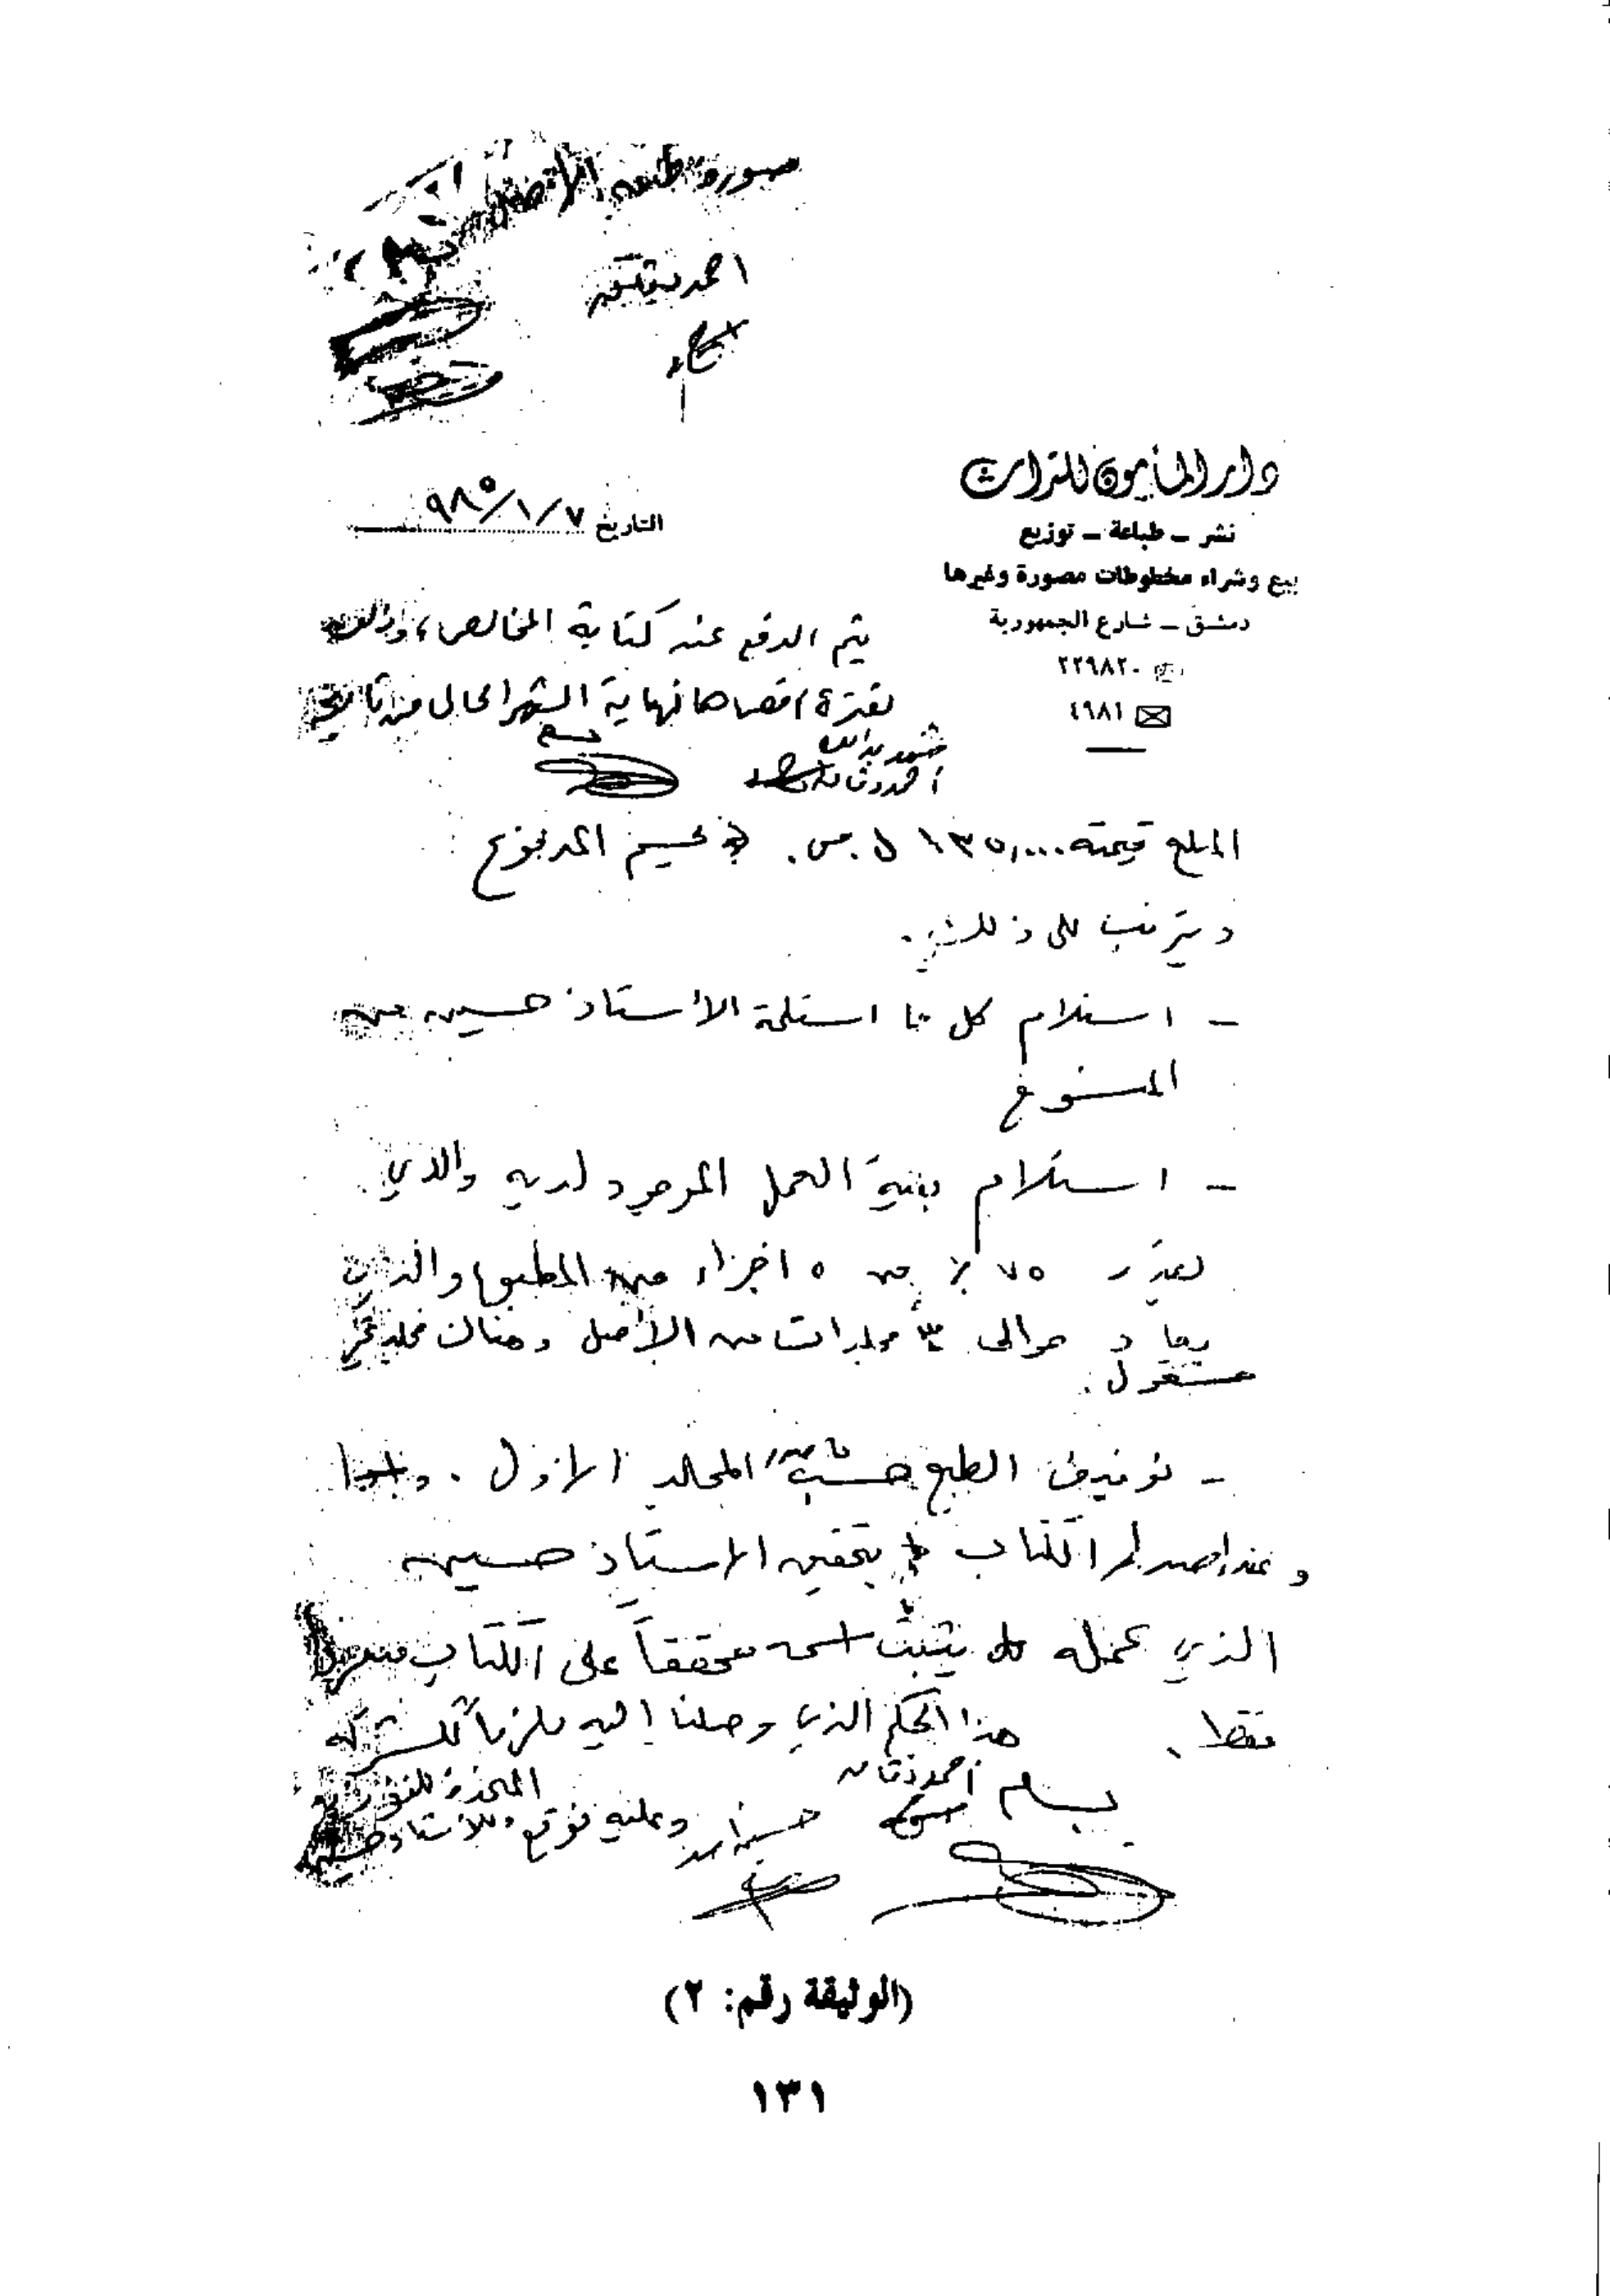 صورة طبق الأصل
احمد
دار المأمون للتراث
نشر ـ طباعة ـ توزيع
بيع وشراء مخطوطات مصورة وغيرها
دمشق ـ شارع الجمهورية
٢٢٩٨٢٠
٤٩٨١
التاريخ ٩٨٥/١/٧
يتم الدفع عند كتابة المخالصة، وذلك
لفترة اقصاها نهاية الشهر الحالي من تاريخه
بسام
أحمد دقاق
المبلغ قيمته ١٣٥,٠٠٠ ل.س. حسم المدفوع
ويترتب على ذلك
ـ استلام كل ما استلمه الاستاذ حسين من
المنسوخ
ـ استلام بقية العمل الموجود لديه والذي
يقدر ٧٥٪ من ٥ اجزاء من المطبوع والذي
يعادل حوالي ٣ مجلدات من الأصل وهناك مجلد غير
منقول.
ـ توقيف الطبع المجلد الاول.
وعند اصدار الكتاب بتحقيق الاستاذ حسين
الذي عمله يثبت اسمه محققاً على الكتاب
فقط. هذا الحكم الذي وصلنا اليه ملزماً للشركة
المنجزة
بسام أحمد دقاق حسين أسد وعليه نوقع والاستاذ حسين
(الوثيقة رقم: ٢)
١٣١